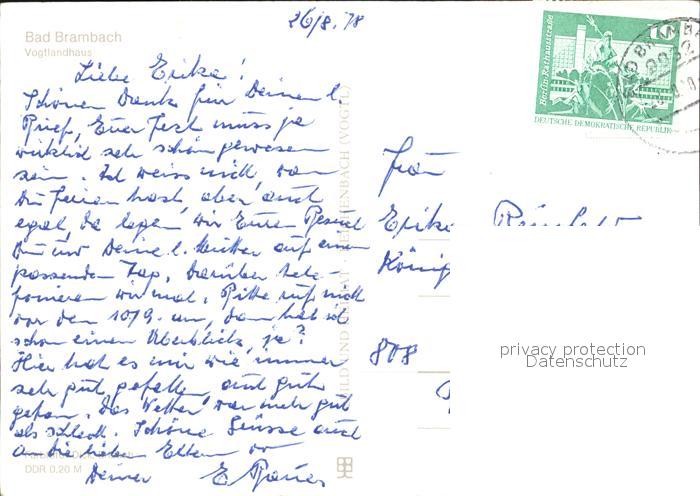 26/8. 78
Bad Brambach
Vogtlandhaus
Liebe Erika!
Schönen Dank für Deinen l.
Brief, Euer Fest muss ja
wirklich sehr schön gewesen
sein. Ich weiss nicht, wan
Du Ferien hast, aber auch
egal, da legen wir Euren Besuch
Du und Deine l. Mutter auf einen
passenden Tag. Darüber tele-
fonieren wir mal. Bitte ruf mich
vor den 10/9. an, dann hab ich
schon einen Überblick, ja?
Hier hat es mir wie immer
sehr gut gefallen, auch gut
getan. Das Wetter war mehr gut
als schlecht. Schöne Grüsse auch
an die lieben Eltern
Deiner E
DDR 0,20 M
BILD UND REICHENBACH (VOGTL)
Berlin·Rathausstraße
10
DEUTSCHE DEMOKRATISCHE REPUBLIK
BAD BRAMBA
9932
Frau
Erika
König
808
privacy protection
Datenschutz